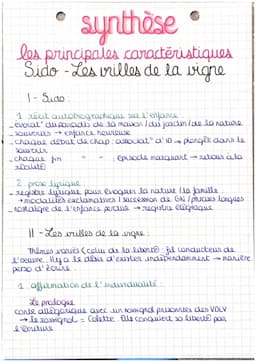 synthèse
les principales caractéristiques
Sido - Les vrilles de la vigne
I - Sido :
1. récit autobiographique sur l'enfance
- évocat° du paradis de la maison / du jardin / de la nature
- souvenirs → enfance heureuse
- chaque début de chap : évocat° d'1 → plongée dans le
souvenir
- chaque fin " " : épisode marquant → retour à la
réalité
2. prose lyrique
- registre lyrique pour évoquer la nature / la famille
→ modalités exclamatives / succession de GN / phrases longues
- nostalgie de l'enfance perdue → registre élégiaque
II - Les vrilles de la vigne :
Thèmes variés (celui de la liberté) : fil conducteur de
l'oeuvre. Il y a le désir d'exister indépendamment → manière
perso d'écrire.
1. affirmation de l'individualité :
Le prologue
conte allégorique avec un rossignol prisonnier des VDLV
→ le rossignol = Colette. Elle conquiert sa liberté par
l'écriture